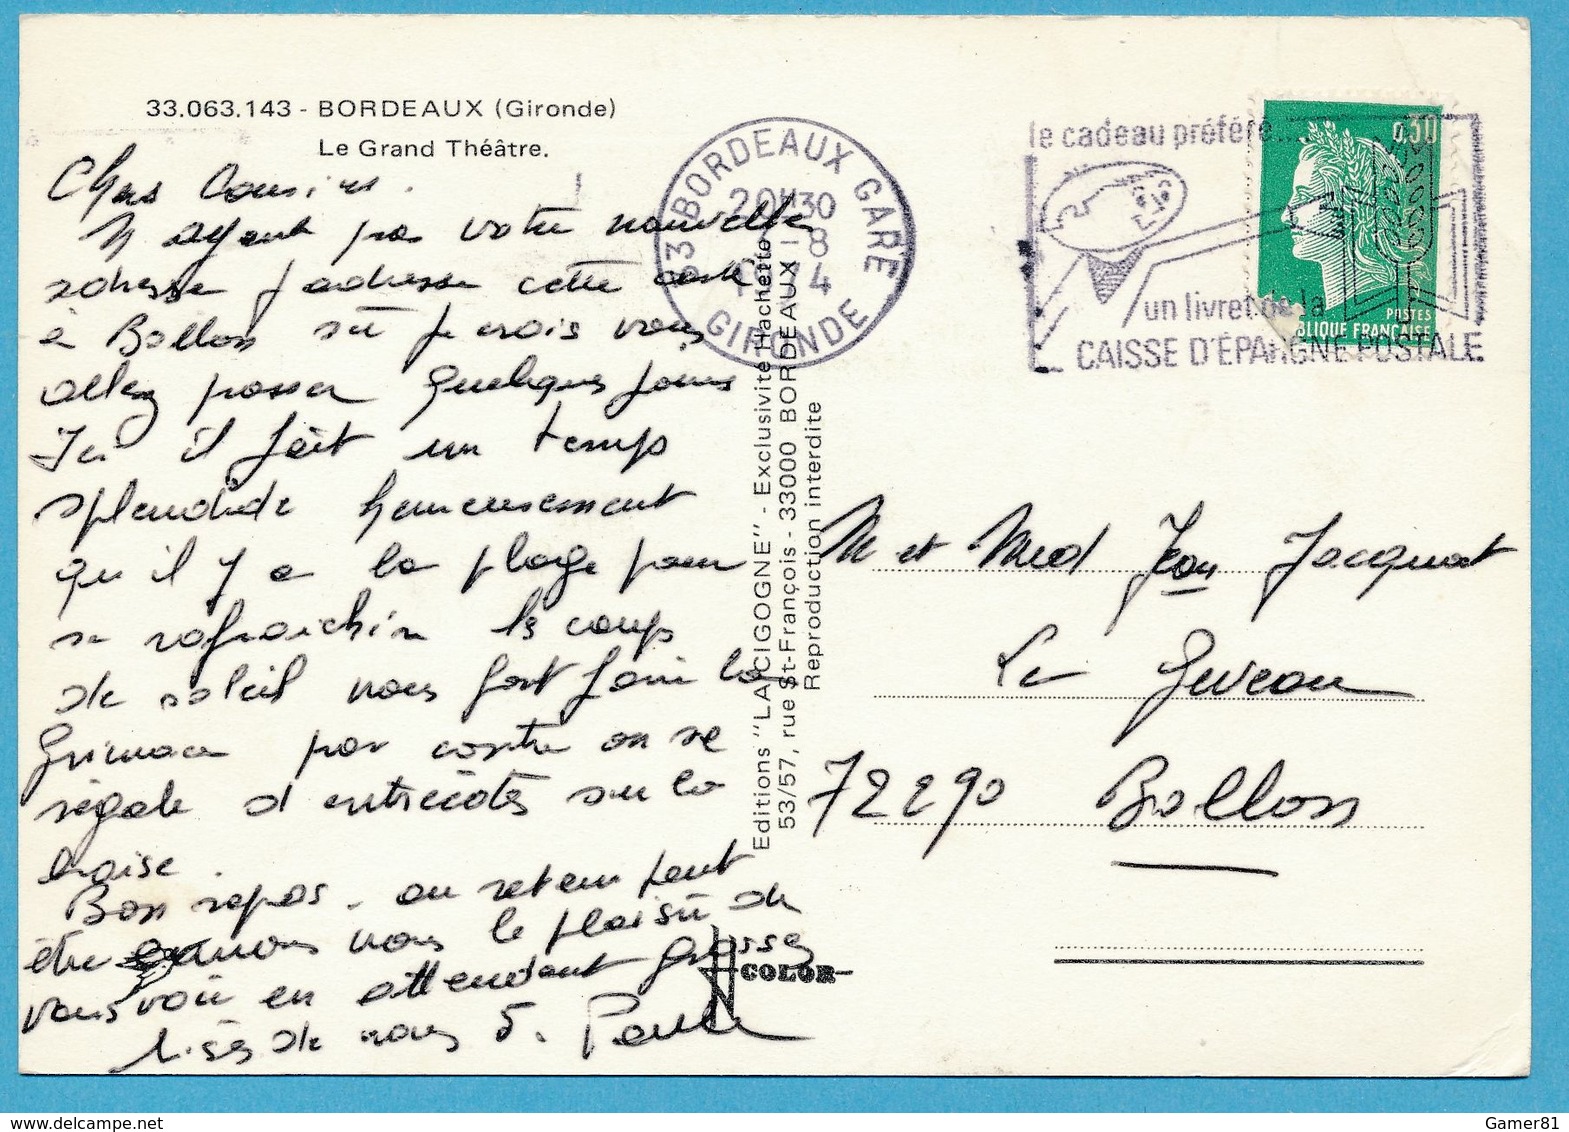 33.063.143 - BORDEAUX (Gironde)
Le Grand Théâtre.
Chers Cousins.
N ayant pas votre nouvelle
adresse j adresse cette carte
à Ballon où je crois vous
allez passer quelques jours
Ici il fait un temps
splendide heureusement
qu il y a la plage pour
se rafraichir les coups
de soleil nous font faire la
grimace par contre on se
régale d entrecôtes sur la
braise.
Bon repos. au retour peut
être aurons nous le plaisir de
vous voir en attendant grosses
bises de nous 5.
33 BORDEAUX GARE
20H30
8
1974
GIRONDE
le cadeau préféré...
un livret de la
CAISSE D'ÉPARGNE POSTALE
0,30
POSTES
BLIQUE FRANÇAISE
Editions "LA CIGOGNE" - Exclusivité Hachette
53/57, rue St-François - 33000 BORDEAUX
Reproduction interdite
COLOR
M et Med Jean Jacquot
Le
72290 Ballon
Gamer81